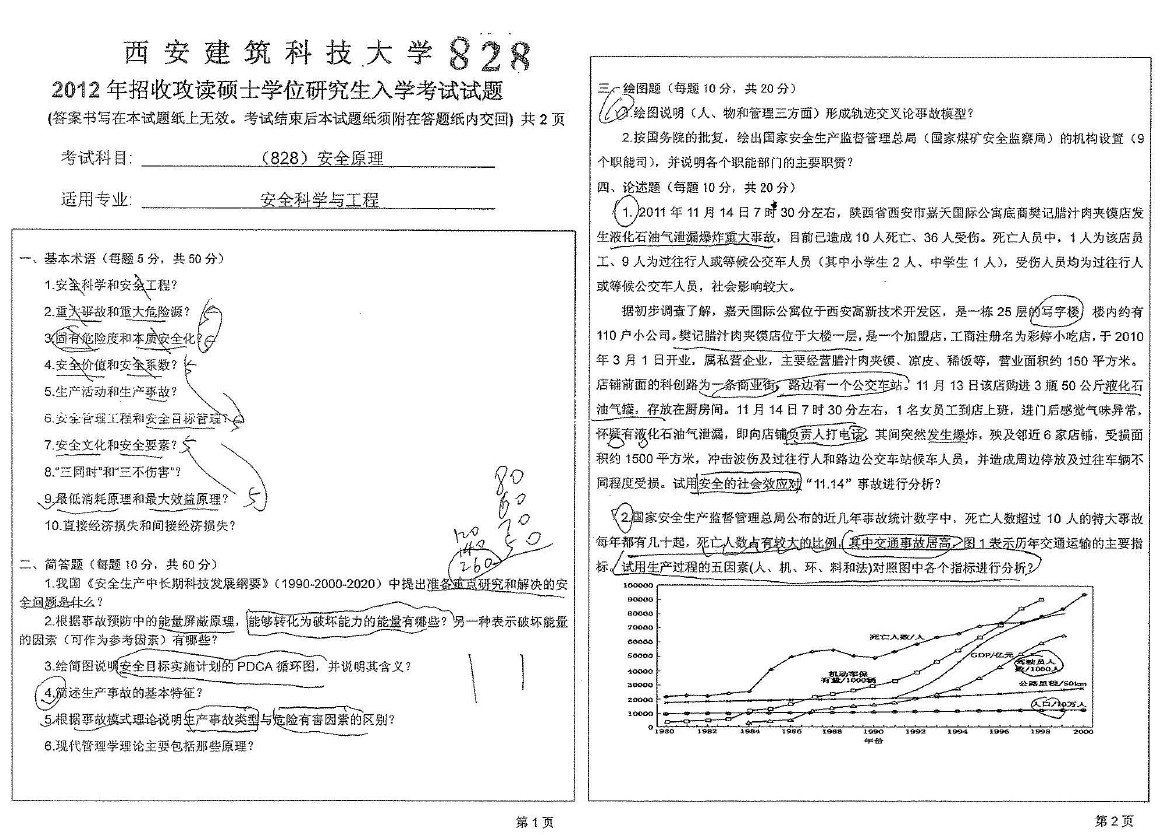 西安建筑科技大学 828
2012年招收攻读硕士学位研究生入学考试试题
(答案书写在本试题纸上无效。考试结束后本试题纸须附在答题纸内交回) 共 2 页
考试科目: （828）安全原理
适用专业: 安全科学与工程
一、基本术语（每题 5 分，共 50 分）
1.安全科学和安全工程?
2.重大事故和重大危险源?
3.固有危险度和本质安全化?
4.安全价值和安全系数? 5
5.生产活动和生产事故?
6.安全管理工程和安全目标管理?
7.安全文化和安全要素? 5
8.“三同时”和“三不伤害”?
9.最低消耗原理和最大效益原理? 5
10.直接经济损失和间接经济损失?
80
60
20
50
120
140
260
二、简答题（每题 10 分，共 60 分）
1.我国《安全生产中长期科技发展纲要》（1990-2000-2020）中提出准备重点研究和解决的安
全问题是什么?
2.根据事故预防中的能量屏蔽原理，能够转化为破坏能力的能量有哪些? 另一种表示破坏能量
的因素（可作为参考因素）有哪些?
3.绘简图说明安全目标实施计划的 PDCA 循环图，并说明其含义?
4.简述生产事故的基本特征?
5.根据事故模式理论说明生产事故类型与危险有害因素的区别?
6.现代管理学理论主要包括那些原理?
第 1 页
三、绘图题（每题 10 分，共 20 分）
1.绘图说明（人、物和管理三方面）形成轨迹交叉论事故模型?
2.按国务院的批复，绘出国家安全生产监督管理总局（国家煤矿安全监察局）的机构设置（9
个职能司)，并说明各个职能部门的主要职责?
四、论述题（每题 10 分，共 20 分）
1. 2011 年 11 月 14 日 7 时 30 分左右，陕西省西安市嘉天国际公寓底商樊记腊汁肉夹馍店发
生液化石油气泄漏爆炸重大事故，目前已造成 10 人死亡、36 人受伤。死亡人员中，1 人为该店员
工、9 人为过往行人或等候公交车人员（其中小学生 2 人、中学生 1 人），受伤人员均为过往行人
或等候公交车人员，社会影响较大。
据初步调查了解，嘉天国际公寓位于西安高新技术开发区，是一栋 25 层的写字楼，楼内约有
110 户小公司。樊记腊汁肉夹馍店位于大楼一层，是一个加盟店，工商注册名为彩婷小吃店，于 2010
年 3 月 1 日开业，属私营企业，主要经营腊汁肉夹馍、凉皮、稀饭等，营业面积约 150 平方米。
店铺前面的科创路为一条商业街，路边有一个公交车站。11 月 13 日该店购进 3 瓶 50 公斤液化石
油气罐，存放在厨房间。11 月 14 日 7 时 30 分左右，1 名女员工到店上班，进门后感觉气味异常，
怀疑有液化石油气泄漏，即向店铺负责人打电话，其间突然发生爆炸，殃及邻近 6 家店铺，受损面
积约 1500 平方米，冲击波伤及过往行人和路边公交车站候车人员，并造成周边停放及过往车辆不
同程度受损。试用安全的社会效应对“11.14”事故进行分析?
2.国家安全生产监督管理总局公布的近几年事故统计数字中，死亡人数超过 10 人的特大事故
每年都有几十起，死亡人数占有较大的比例，其中交通事故居高，图 1 表示历年交通运输的主要指
标。试用生产过程的五因素(人、机、环、料和法)对照图中各个指标进行分析?
100000
90000
80000
70000
60000
50000
40000
30000
20000
10000
0
死亡人数/人
机动车保
有量/1000辆
GDP/亿元
驾驶员人
数/1000人
公路里程/50km
人口/10万人
1980 1982 1984 1986 1988 1990 1992 1994 1996 1998 2000
年份
第 2 页